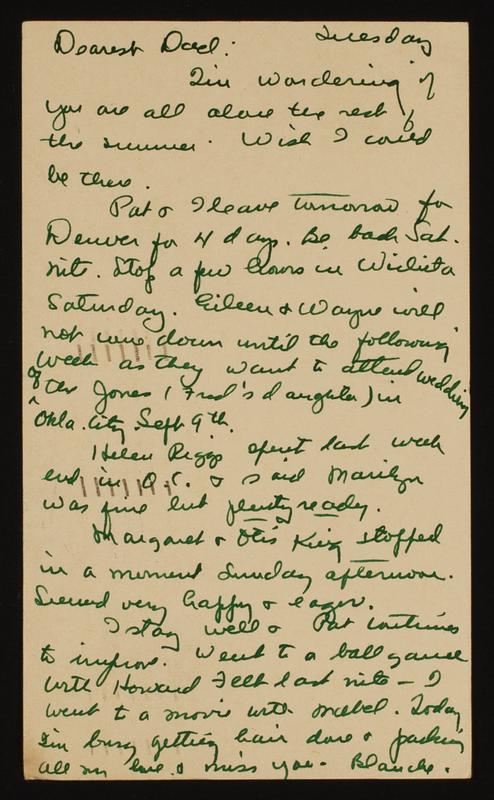 Dearest Dad: Tuesday
I'm wondering if
you are all alone the rest of
the summer. Wish I could
be there.
Pat & I leave tomorrow for
Denver for 4 days. Be back Sat.
nite. Stop a few hours in Wichita
Saturday. Eileen & Wayne will
not come down until the following
week as they want to attend wedding
of the Jones (Fred's daughter) in
Okla. City Sept 9th.
Helen Riggs spent last week
end in O.C. & said Marilyn
was fine but plenty ready.
Margaret & Otis King stopped
in a moment Sunday afternoon.
Seemed very happy & eager.
I stay well & Pat continues
to improve. Went to a ball game
with Howard Felt last nite – I
went to a movie with Mabel. Today
I'm busy getting hair done & packing
all my love & miss you. Blanche.